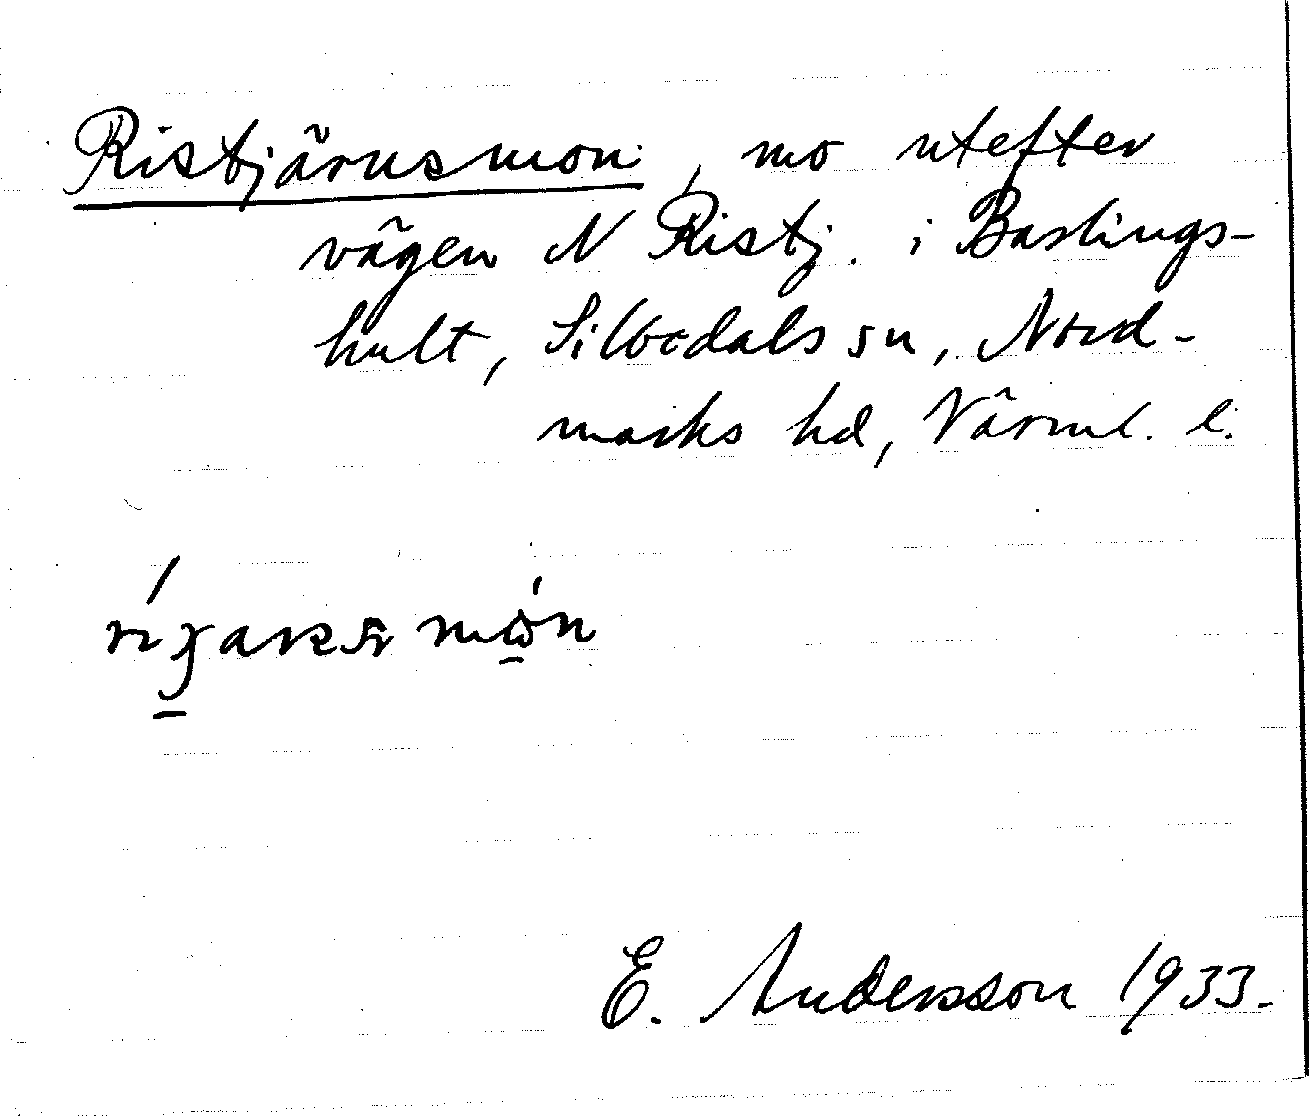 Ristjärnsmon, mo utefter
vägen N Ristj. i Bastings-
hult, Sillbodals sn, Nord-
marks hd, Värml. l.
E. Andersson 1933.